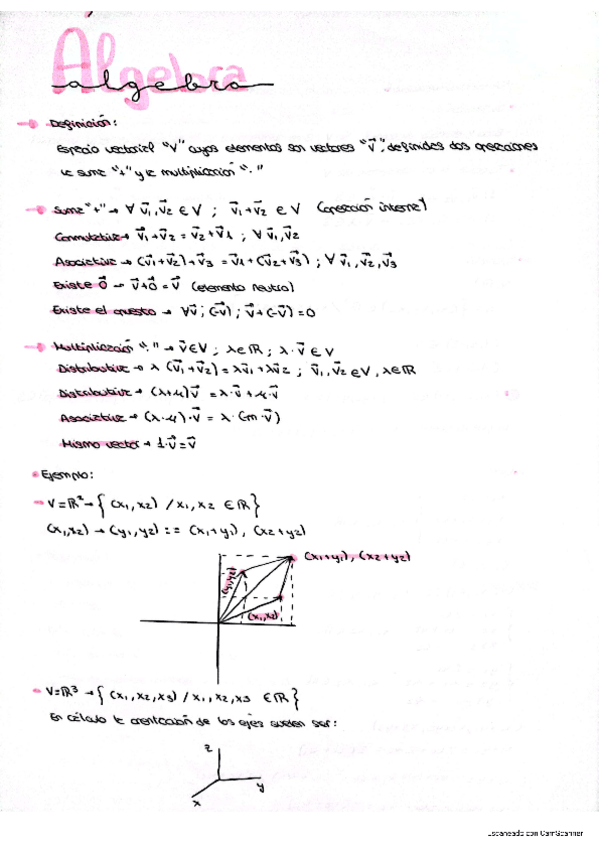 Álgebra
algebra
Definición:
Espacio vectorial "V" cuyos elementos son vectores "v⃗", definidas dos operaciones
la suma "+" y la multiplicación "·"
Suma "+" → ∀ v⃗₁, v⃗₂ ∈ V ; v⃗₁+v⃗₂ ∈ V (operación interna)
Conmutativa → v⃗₁+v⃗₂ = v⃗₂+v⃗₁ ; ∀ v⃗₁, v⃗₂
Asociativa → (v⃗₁+v⃗₂)+v⃗₃ = v⃗₁+(v⃗₂+v⃗₃) ; ∀ v⃗₁, v⃗₂, v⃗₃
Existe 0⃗ → v⃗+0⃗ = v⃗ (elemento neutro)
Existe el opuesto → ∀v⃗ ; (-v⃗) ; v⃗+(-v⃗)=0
Multiplicación "·" → v⃗∈V ; λ∈ℝ ; λ·v⃗ ∈ V
Distributiva → λ (v⃗₁+v⃗₂) = λv⃗₁+λv⃗₂ ; v⃗₁, v⃗₂ ∈ V, λ∈ℝ
Distributiva → (λ+μ)v⃗ = λ·v⃗+μ·v⃗
Asociativa → (λ·μ)·v⃗ = λ·(m·v⃗)
Mismo vector → 1·v⃗=v⃗
Ejemplo:
V=ℝ² → { (x₁, x₂) / x₁, x₂ ∈ ℝ }
(x₁,x₂) → (y₁,y₂) := (x₁+y₁), (x₂+y₂)
(x₁+y₁), (x₂+y₂)
(y₁,y₂)
(x₁,x₂)
V=ℝ³ → { (x₁, x₂, x₃) / x₁, x₂, x₃ ∈ ℝ }
En cálculo la orientación de los ejes suelen ser:
z
y
x
Escaneado con CamScanner